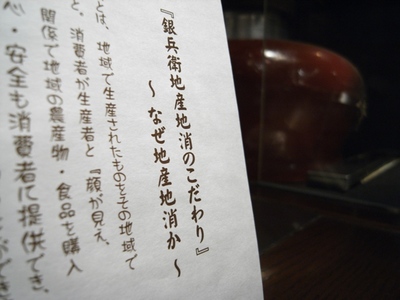 『銀兵衛地産地消のこだわり』
～なぜ地産地消か～
とは、地域で生産されたものをその地域で
と。消費者が生産者と『顔が見え、
関係で地域の農産物・食品を購入
心・安全も消費者に提供でき、